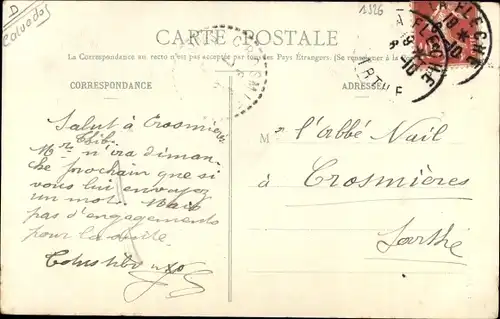 D
Calvados
1326
CARTE POSTALE
La Correspondance au recto n'est pas acceptée par tous les Pays Étrangers. (Se renseigner à la
CORRESPONDANCE
ADRESSE
LA FLECHE
SARTHE
Salut à Crosmières
Mr
n'ira diman-
che prochain que si
vous lui envoyez
un mot. Mais
pas d'engagements
pour la suite.
M r l'Abbé Nail
à Crosmières
Sarthe